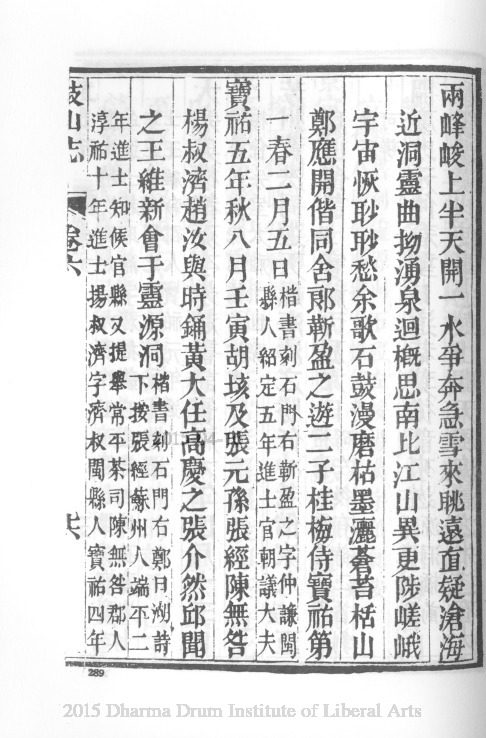 兩峰峻上半天開一水爭奔急雪來眺遠直疑滄海
近洞靈曲拗湧泉迴槪思南北江山異更陟嵯峨
宇宙恢聊聊愁余歌石鼓漫磨枯墨灑蒼苔栝山
鄭應開偕同舍郎蘄盈之遊二子桂梅侍寶祐第
一春二月五日
楷書刻石門右蘄盈之字仲謙閩
縣人紹定五年進士官朝議大夫
寶祐五年秋八月壬寅胡垓及張元孫張經陳無咎
楊叔濟趙汝與時鋿黃大任高慶之張介然邱聞
之王維新會于靈源洞
楷書刻石門右鄭日湖詩
下按張經蘇州人端平二
年進士知候官縣又提舉常平茶司陳無咎郡人
淳祐十年進士揚叔濟字濟叔閩縣人寶祐四年
鼓山志
卷六
289
2015 Dharma Drum Institute of Liberal Arts